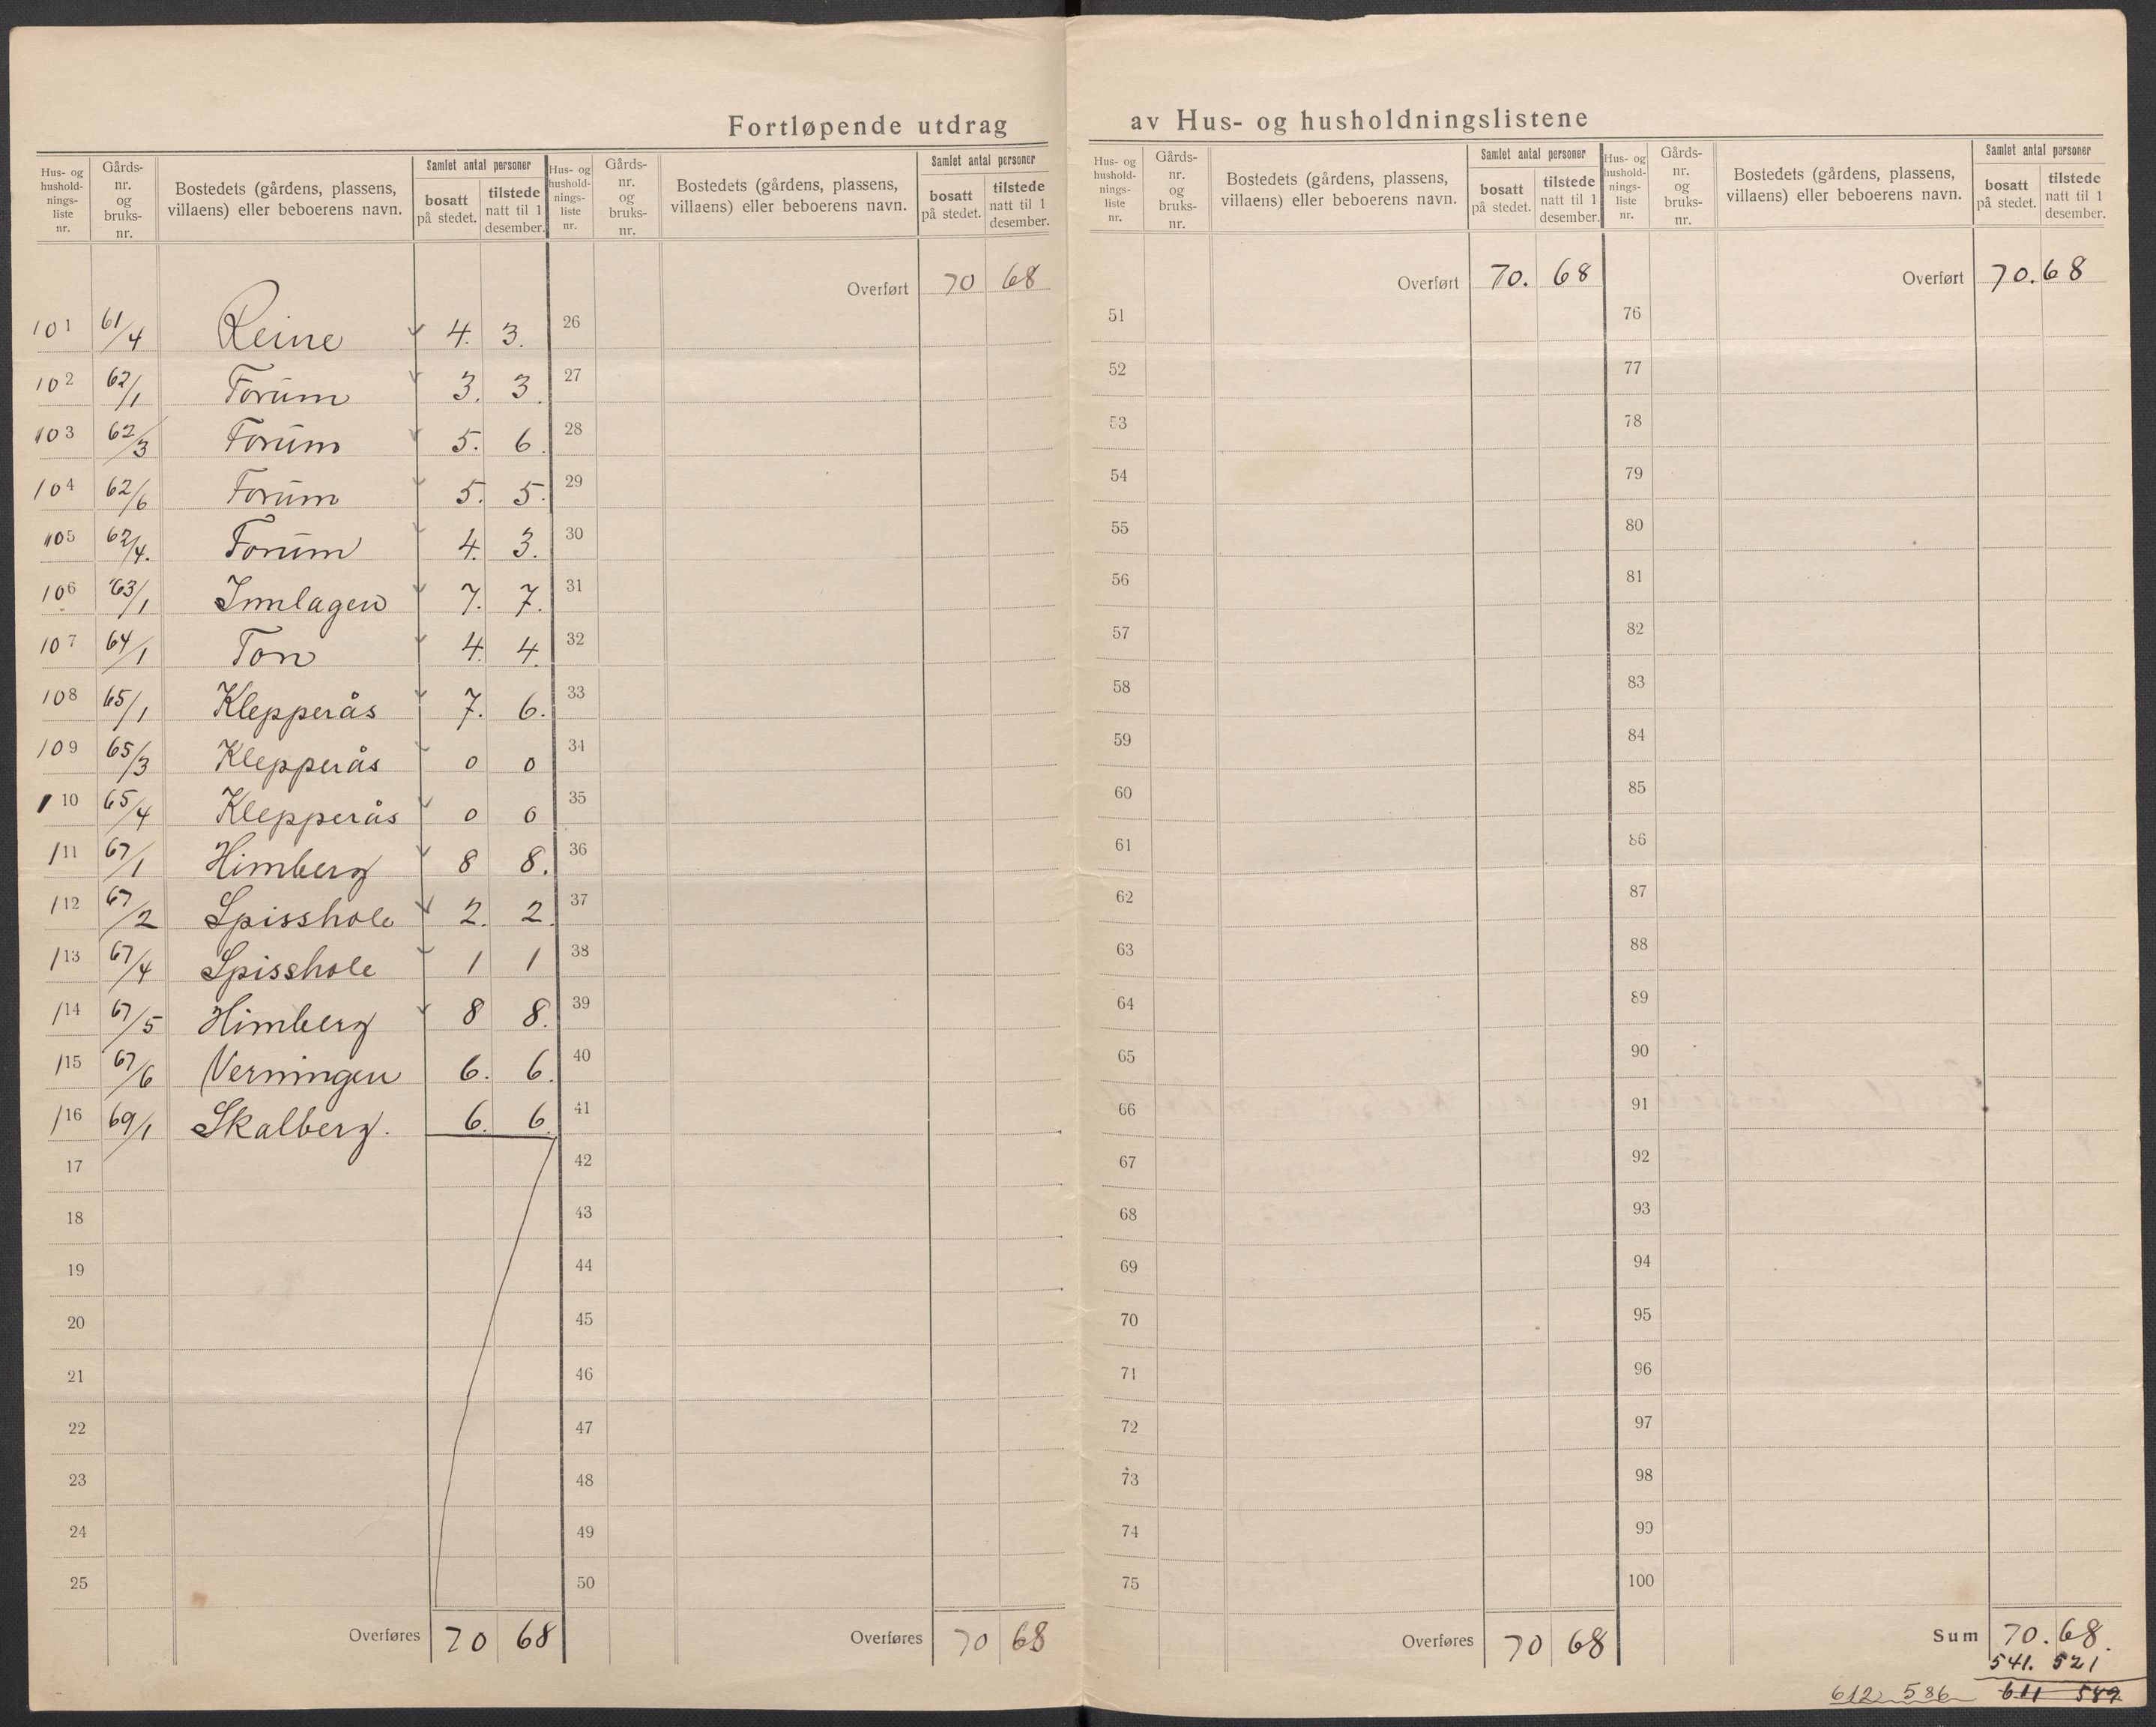 Fortløpende utdrag av Hus- og husholdningslistene
Hus- og hushold-nings-liste nr. | Gårds-nr. og bruks-nr. | Bostedets (gårdens, plassens, villaens) eller beboerens navn. | Samlet antal personer | bosatt på stedet. | tilstede natt til 1 desember.
101 61/4 Reine 4. 3.
102 62/1 Forum 3. 3.
103 62/3 Forum 5. 6.
104 62/6 Forum 5. 5.
105 62/4. Forum 4. 3.
106 63/1 Imlagen 7. 7.
107 64/1 Ton 4. 4.
108 65/1 Klepperås 7. 6.
109 65/3 Klepperås 0 0
110 65/4 Klepperås 0 0
111 67/1 Himberg 8 8.
112 67/2 Spisshole 2. 2.
113 67/4 Spisshole 1 1
114 67/5 Himberg 8 8.
115 67/6 Verningen 6. 6.
116 69/1 Skalberg. 6. 6.
17
18
19
20
21
22
23
24
25
Overføres 70 68
Hus- og hushold-nings-liste nr. | Gårds-nr. og bruks-nr. | Bostedets (gårdens, plassens, villaens) eller beboerens navn. | Samlet antal personer | bosatt på stedet. | tilstede natt til 1 desember.
Overført 70 68
26
27
28
29
30
31
32
33
34
35
36
37
38
39
40
41
42
43
44
45
46
47
48
49
50
Overføres 70 68
Hus- og hushold-nings-liste nr. | Gårds-nr. og bruks-nr. | Bostedets (gårdens, plassens, villaens) eller beboerens navn. | Samlet antal personer | bosatt på stedet. | tilstede natt til 1 desember.
Overført 70. 68
51
52
53
54
55
56
57
58
59
60
61
62
63
64
65
66
67
68
69
70
71
72
73
74
75
Overføres 70 68
Hus- og hushold-nings-liste nr. | Gårds-nr. og bruks-nr. | Bostedets (gårdens, plassens, villaens) eller beboerens navn. | Samlet antal personer | bosatt på stedet. | tilstede natt til 1 desember.
Overført 70. 68
76
77
78
79
80
81
82
83
84
85
86
87
88
89
90
91
92
93
94
95
96
97
98
99
100
Sum 70. 68.
541. 521
612 586 611 589